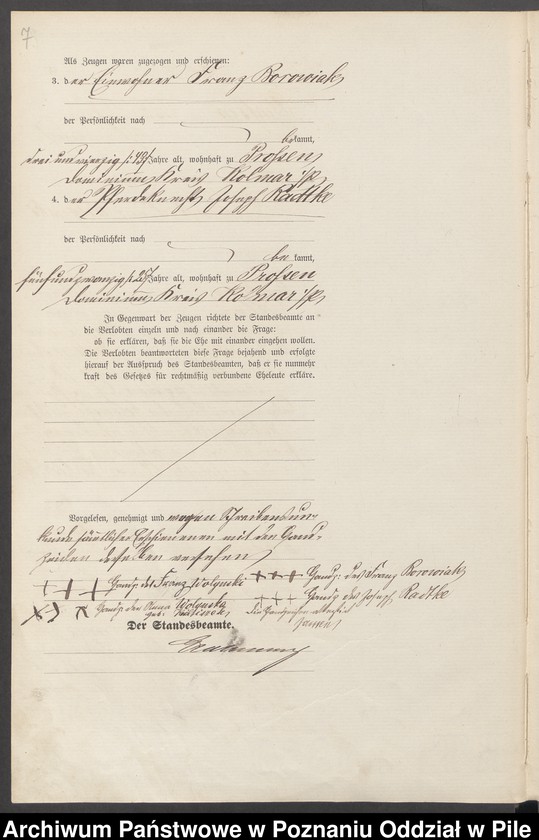 7
Als Zeugen waren zugezogen und erschienen:
3. der Einwohner Franz Borowiak
der Persönlichkeit nach
bekannt,
dreiundvierzig /:43:/ Jahre alt, wohnhaft zu Prossen
Dominium Kreis Kolmar i/P
4. der Pferdeknecht Joseph Radtke
der Persönlichkeit nach
bekannt,
Jahre alt, wohnhaft zu Prossen
Dominium Kreis Kolmar i/P
In Gegenwart der Zeugen richtete der Standesbeamte an
die Verlobten einzeln und nach einander die Frage:
ob sie erklären, daß sie die Ehe mit einander eingehen wollen.
Die Verlobten beantworteten diese Frage bejahend und erfolgte
hierauf der Ausspruch des Standesbeamten, daß er sie nunmehr
kraft des Gesetzes für rechtmäßig verbundene Eheleute erkläre.
Vorgelesen, genehmigt und wegen Schreibensun-
kunde sämtlicher Erschienenen mit den Hand-
zeichen derselben versehen
+ + + Handz. des Franz Wolynski +++ Handz. des Franz Borowiak
Handz. der Anna Wolynska +++ Handz. des Joseph Radtke
geb.
Der Standesbeamte.
Archiwum Państwowe w Poznaniu Oddział w Pile